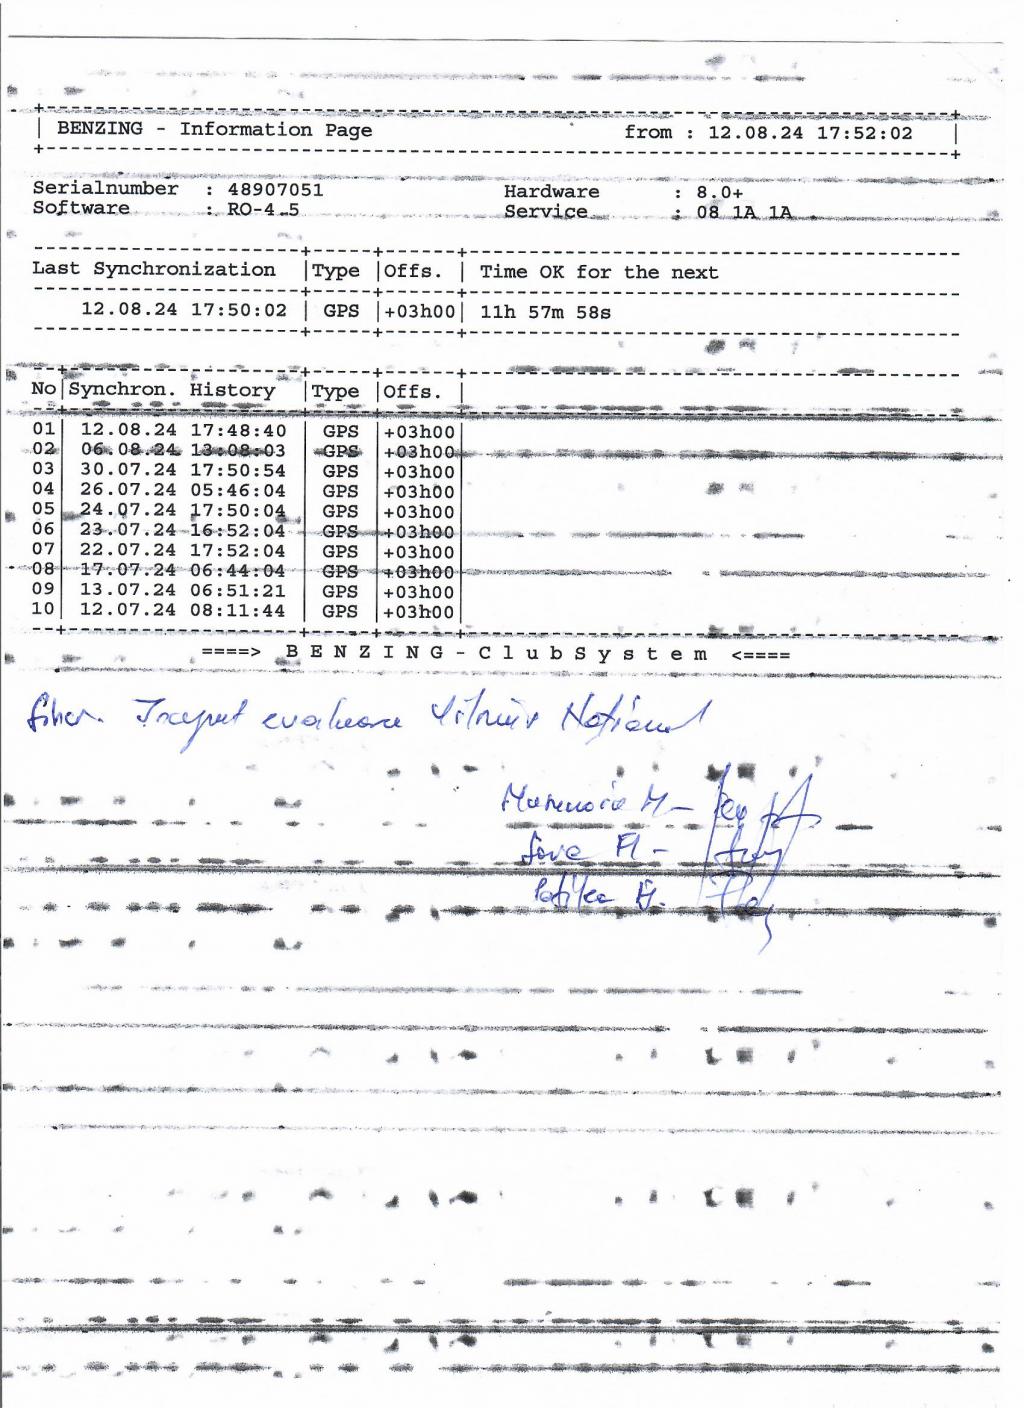 BENZING - Information Page from : 12.08.24 17:52:02
Serialnumber : 48907051 Hardware : 8.0+
Software : RO-4.5 Service : 08 1A 1A
Last Synchronization |Type |Offs. | Time OK for the next
12.08.24 17:50:02 | GPS |+03h00| 11h 57m 58s
No|Synchron. History |Type |Offs. |
01| 12.08.24 17:48:40 | GPS |+03h00|
02| 06.08.24 13:08:03 | GPS |+03h00|
03| 30.07.24 17:50:54 | GPS |+03h00|
04| 26.07.24 05:46:04 | GPS |+03h00|
05| 24.07.24 17:50:04 | GPS |+03h00|
06| 23.07.24 16:52:04 | GPS |+03h00|
07| 22.07.24 17:52:04 | GPS |+03h00|
08| 17.07.24 06:44:04 | GPS |+03h00|
09| 13.07.24 06:51:21 | GPS |+03h00|
10| 12.07.24 08:11:44 | GPS |+03h00|
====> B E N Z I N G - C l u b S y s t e m <====
Inceput evaluare Național